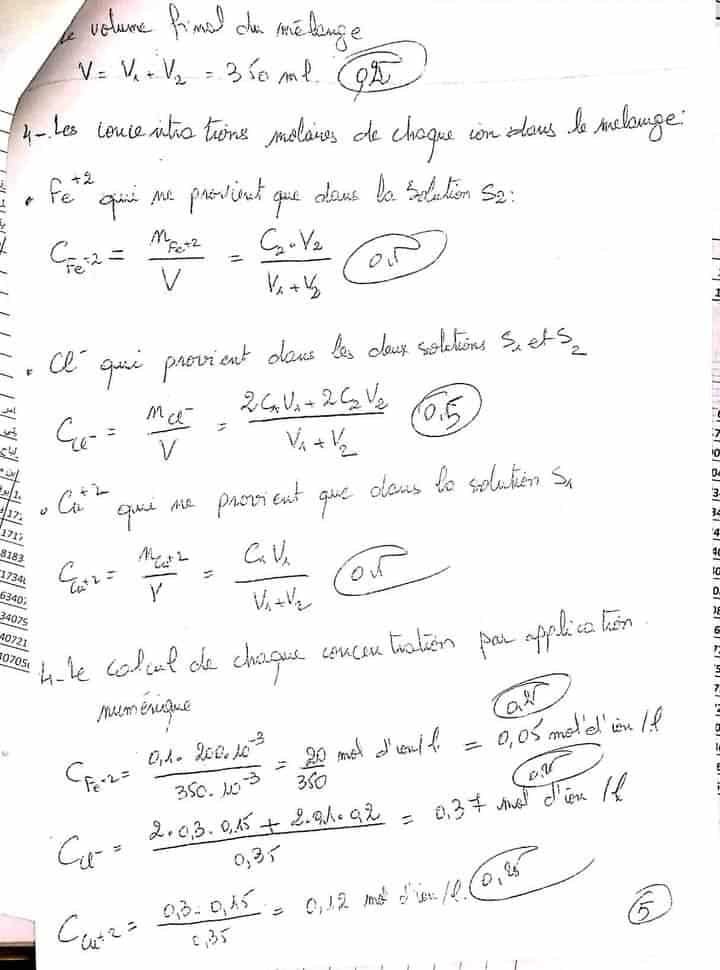 le volume final du mélange
V = V₁ + V₂ = 350 ml. 0,25
4-. Les concentrations molaires de chaque ion dans le melange:
• Fe⁺² qui ne provient que dans la solution S₂:
C_Fe+2 = n_Fe+2 / V = C₂.V₂ / V₁+V₂ 0,5
• Cl⁻ qui provient dans les deux solutions S₁ et S₂
C_Cl⁻ = n_Cl⁻ / V = 2C₁V₁ + 2C₂V₂ / V₁+V₂ 0,5
• Cu⁺² qui ne provient que dans la solution S₁
C_Cu+2 = n_Cu+2 / V = C₁V₁ / V₁+V₂ 0,5
4-Le calcul de chaque concentration par application
numérique
0,25
C_Fe+2 = 0,1 . 200.10⁻³ / 350.10⁻³ = 20/350 mol d'ion/l = 0,05 mol d'ion/l
0,25
C_Cl⁻ = 2.0,3.0,15 + 2.0,1.0,2 / 0,35 = 0,37 mol d'ion/l
C_Cu+2 = 0,3.0,15 / 0,35 = 0,12 mol d'ion/l. 0,25
5
1717
8183
17340
63407
34075
40721